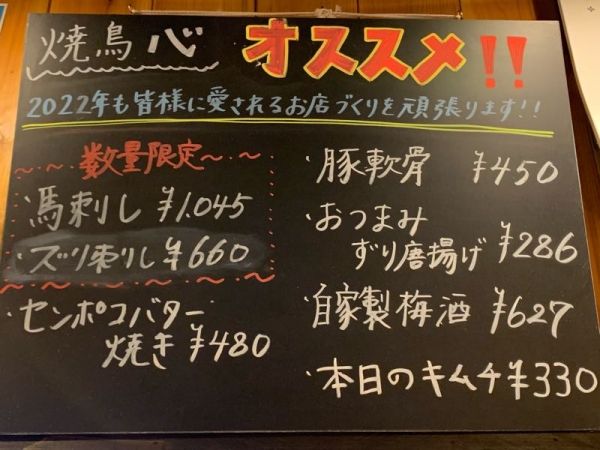 焼鳥 心 オススメ!!
2022年も皆様に愛されるお店づくりを頑張ります!!
〜・〜数量限定〜・〜
馬刺し ¥1.045
ズリ刺し ¥660
・センポコバター
焼き ¥480
・豚軟骨 ¥450
・おつまみ
ずり唐揚げ ¥286
・自家製梅酒 ¥627
・本日のキムチ ¥330